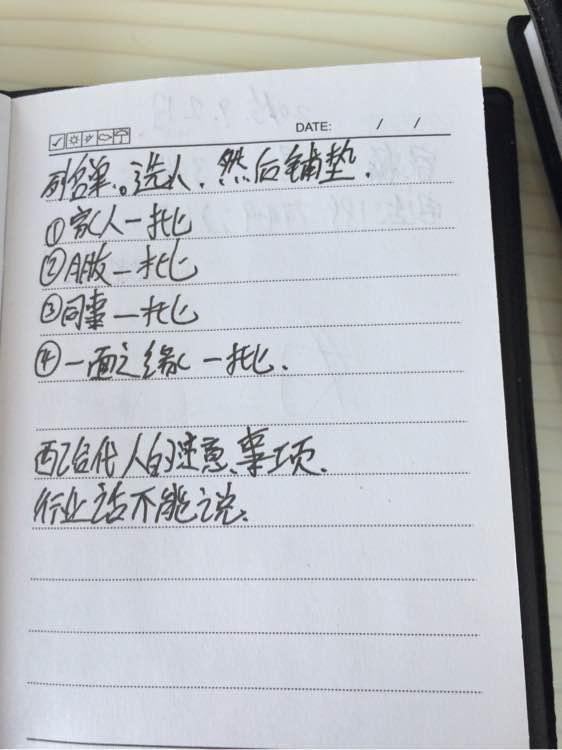 DATE: / /
列名单。选人,然后铺垫.
①家人一批
②一批
③同事一批
④一面之缘一批.
配合代人的注意事项.
行业话不能说.